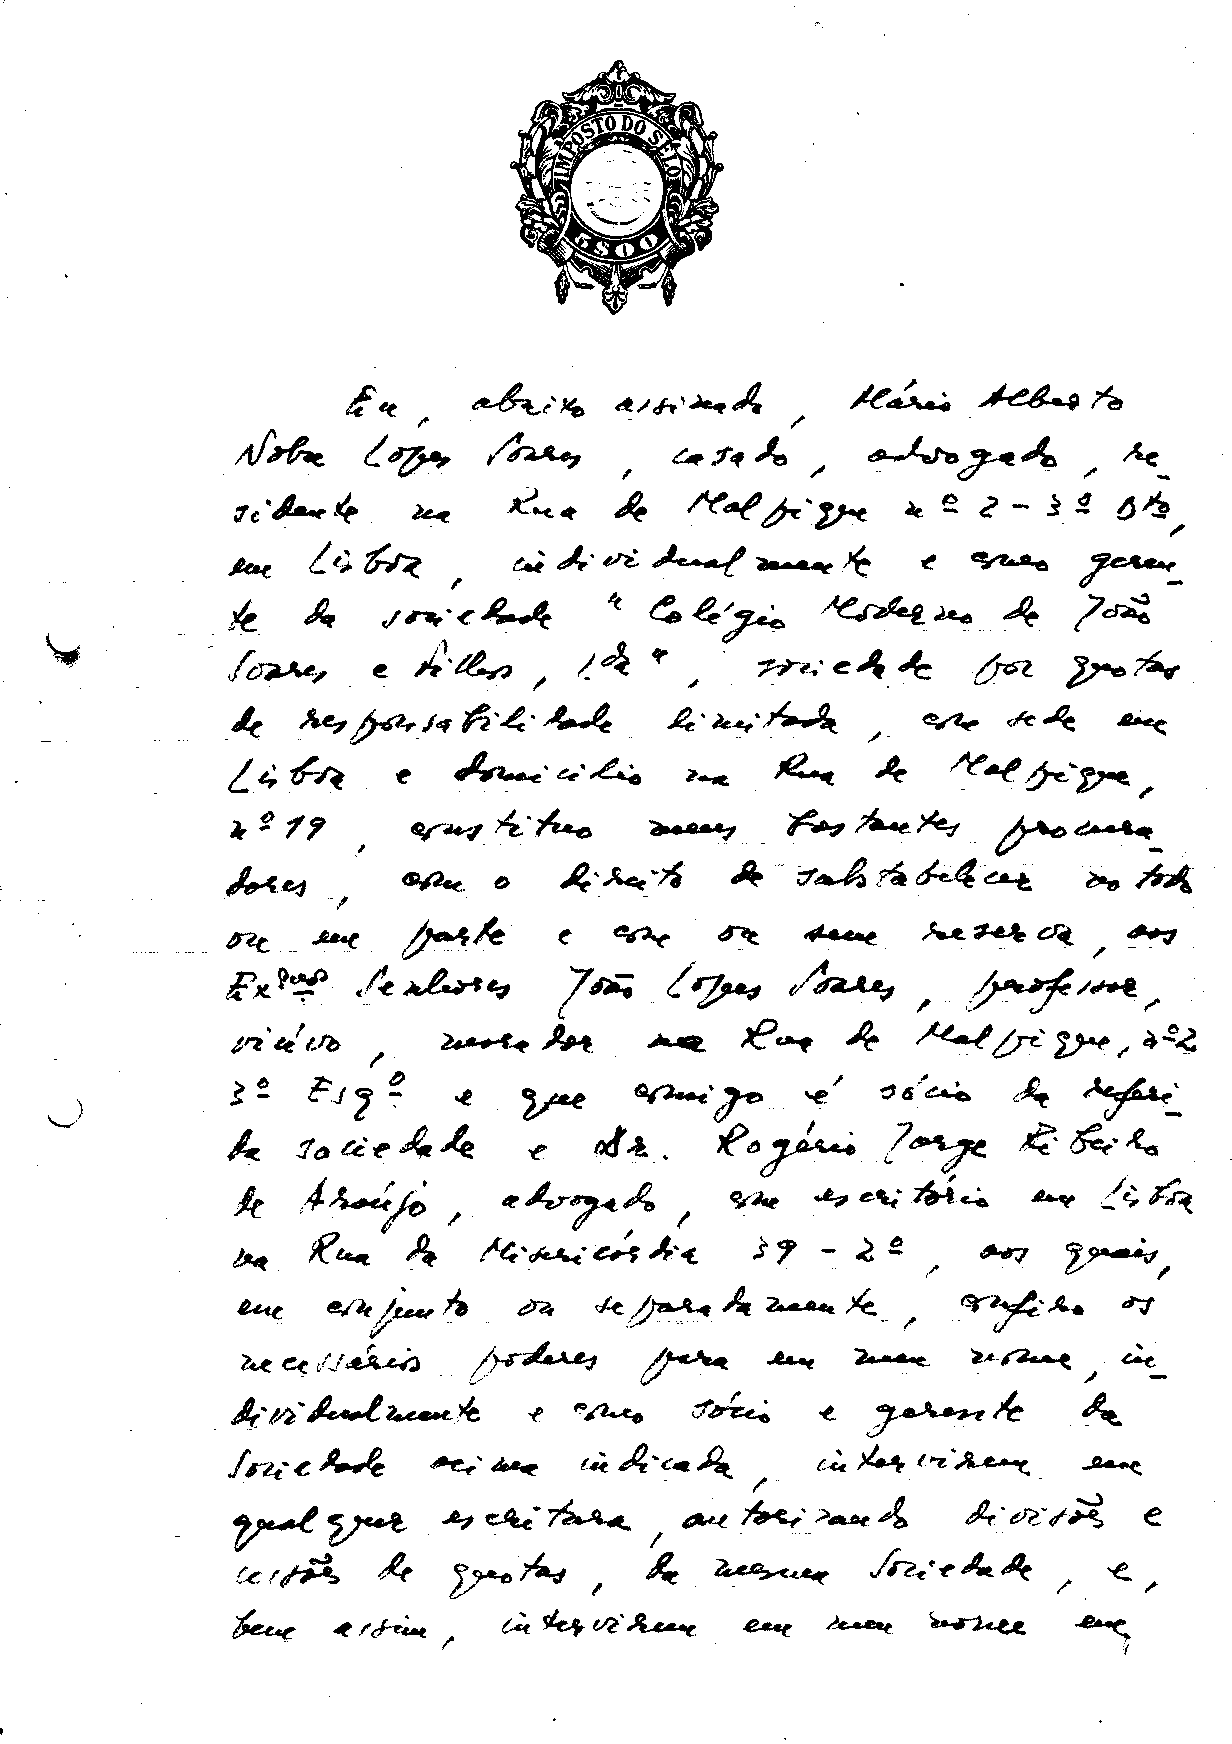 IMPOSTO DO SELO
5$00
Eu, abaixo assinado, Mário Alberto
Nobre Lopes Soares, casado, advogado, re-
sidente na Rua de Malpique nº 2 - 3º Dto,
em Lisboa, individualmente e como geren-
te da sociedade "Colégio Moderno de João
Soares e Filhos, Lda", sociedade por quotas
de responsabilidade limitada, com sede em
Lisboa e domicilio na Rua de Malpique,
nº 19, constituo meus bastantes procura-
dores, com o direito de substabelecer no todo
ou em parte e com ou sem reserva, aos
Exmos Senhores João Lopes Soares, professor,
viúvo, morador na Rua de Malpique, nº 2
3º Esqº e que comigo é sócio da referi-
da sociedade e Dr. Rogério Jorge Ribeiro
de Araújo, advogado, com escritório em Lisboa
na Rua da Misericórdia 39 - 2º, aos quais,
em conjunto ou separadamente, confiro os
necessários poderes para em meu nome, in-
dividualmente e como sócio e gerente da
Sociedade acima indicada, intervirem em
qualquer escritura, autorizando divisões e
cessões de quotas, da mesma Sociedade, e,
bem assim, intervirem em meu nome em,